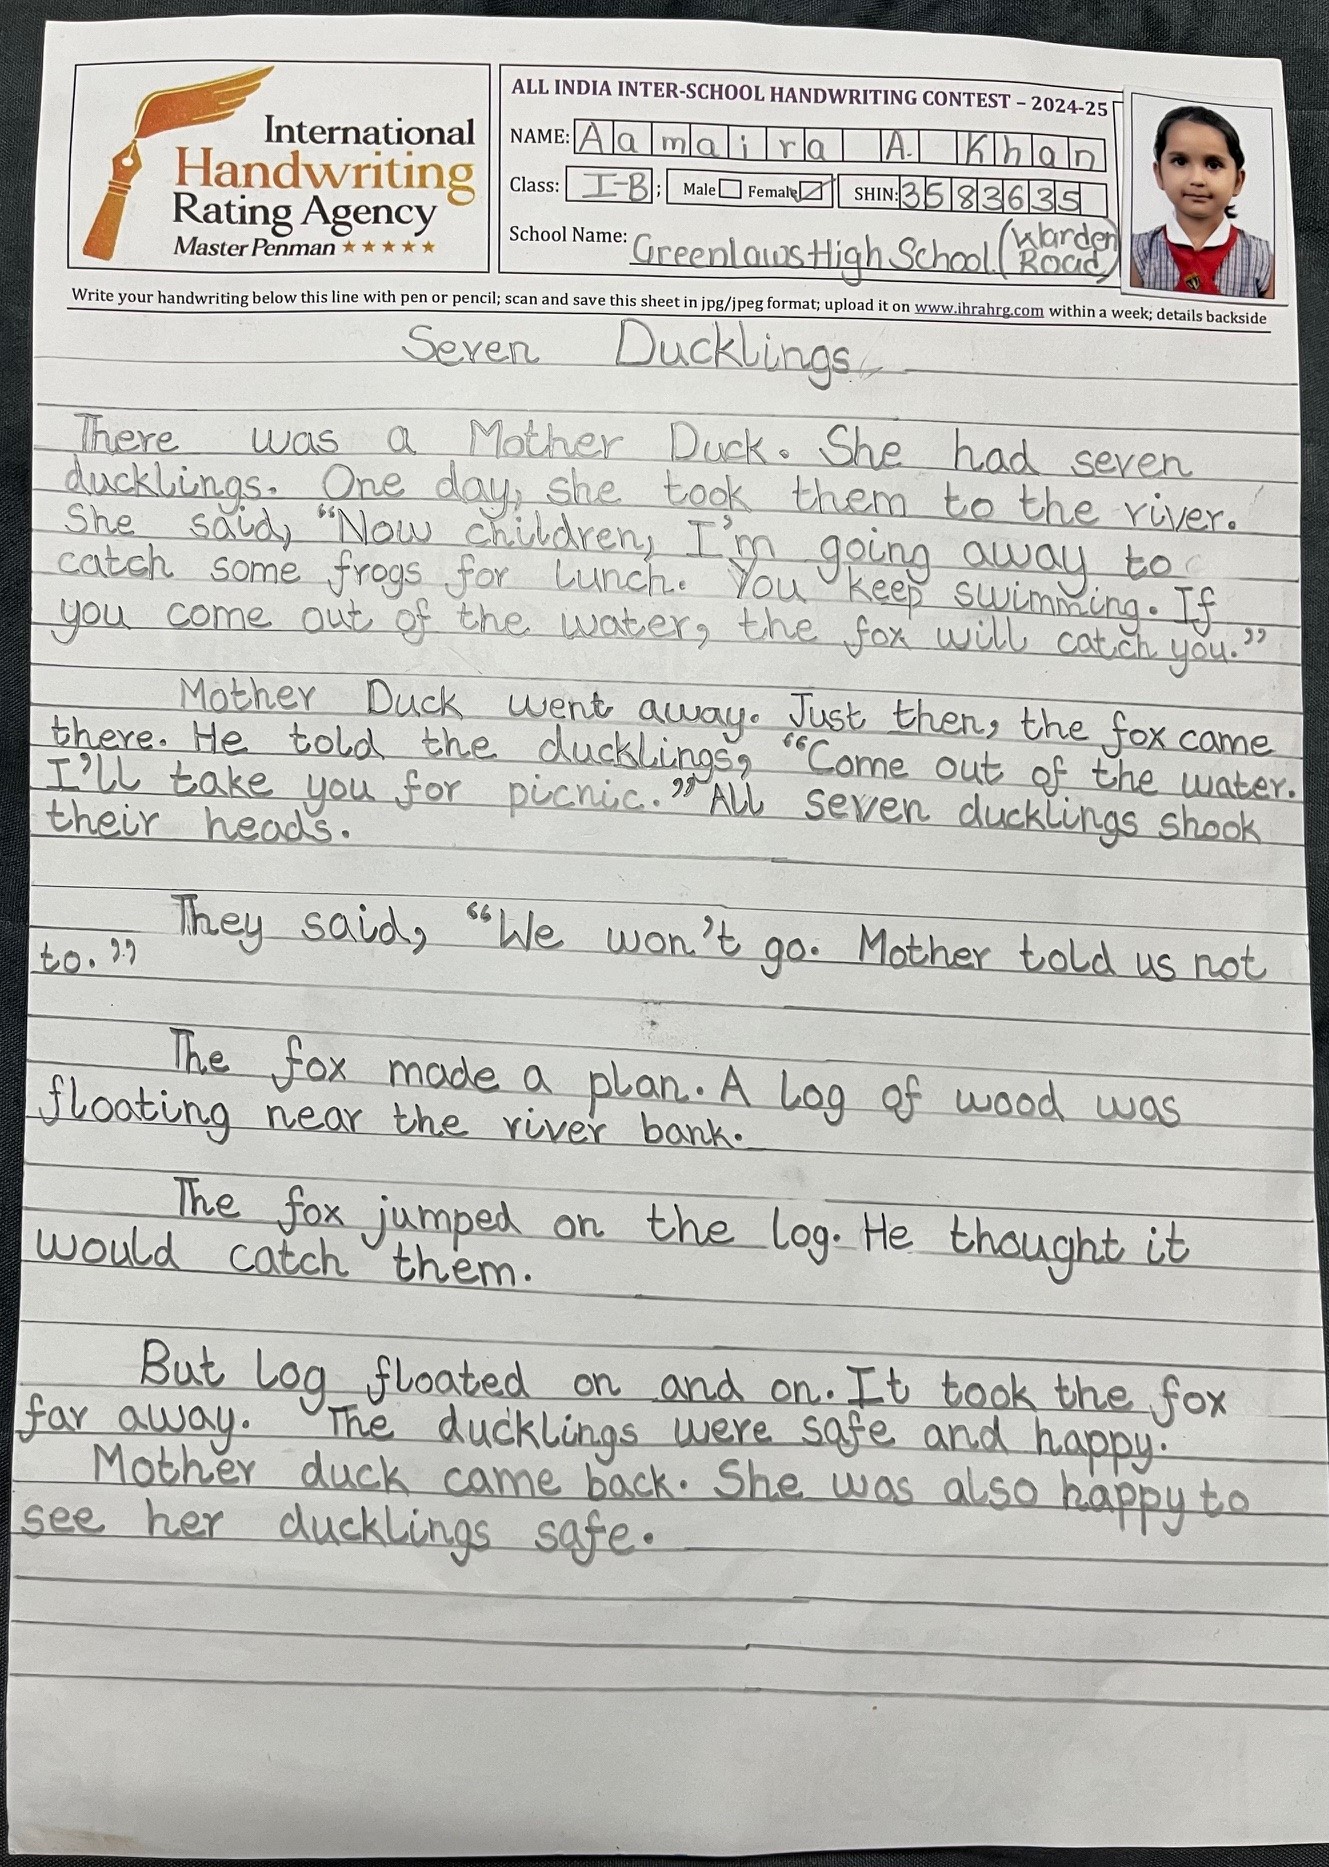 International
Handwriting
Rating Agency
Master Penman ★★★★★
ALL INDIA INTER-SCHOOL HANDWRITING CONTEST – 2024-25
NAME: Aamaira A. Khan
Class: I-B; Male Female SHIN: 3583635
School Name: Greenlawns High School (Warden Road)
Write your handwriting below this line with pen or pencil; scan and save this sheet in jpg/jpeg format; upload it on www.ihrahrg.com within a week; details backside
Seven Ducklings
There was a Mother Duck. She had seven
ducklings. One day, she took them to the river.
She said, “Now children, I'm going away to
catch some frogs for lunch. You keep swimming. If
you come out of the water, the fox will catch you.”
Mother Duck went away. Just then, the fox came
there. He told the ducklings, “Come out of the water.
I'll take you for picnic.” All seven ducklings shook
their heads.
They said, “We won't go. Mother told us not
to.”
The fox made a plan. A log of wood was
floating near the river bank.
The fox jumped on the log. He thought it
would catch them.
But log floated on and on. It took the fox
far away. The ducklings were safe and happy.
Mother duck came back. She was also happy to
see her ducklings safe.